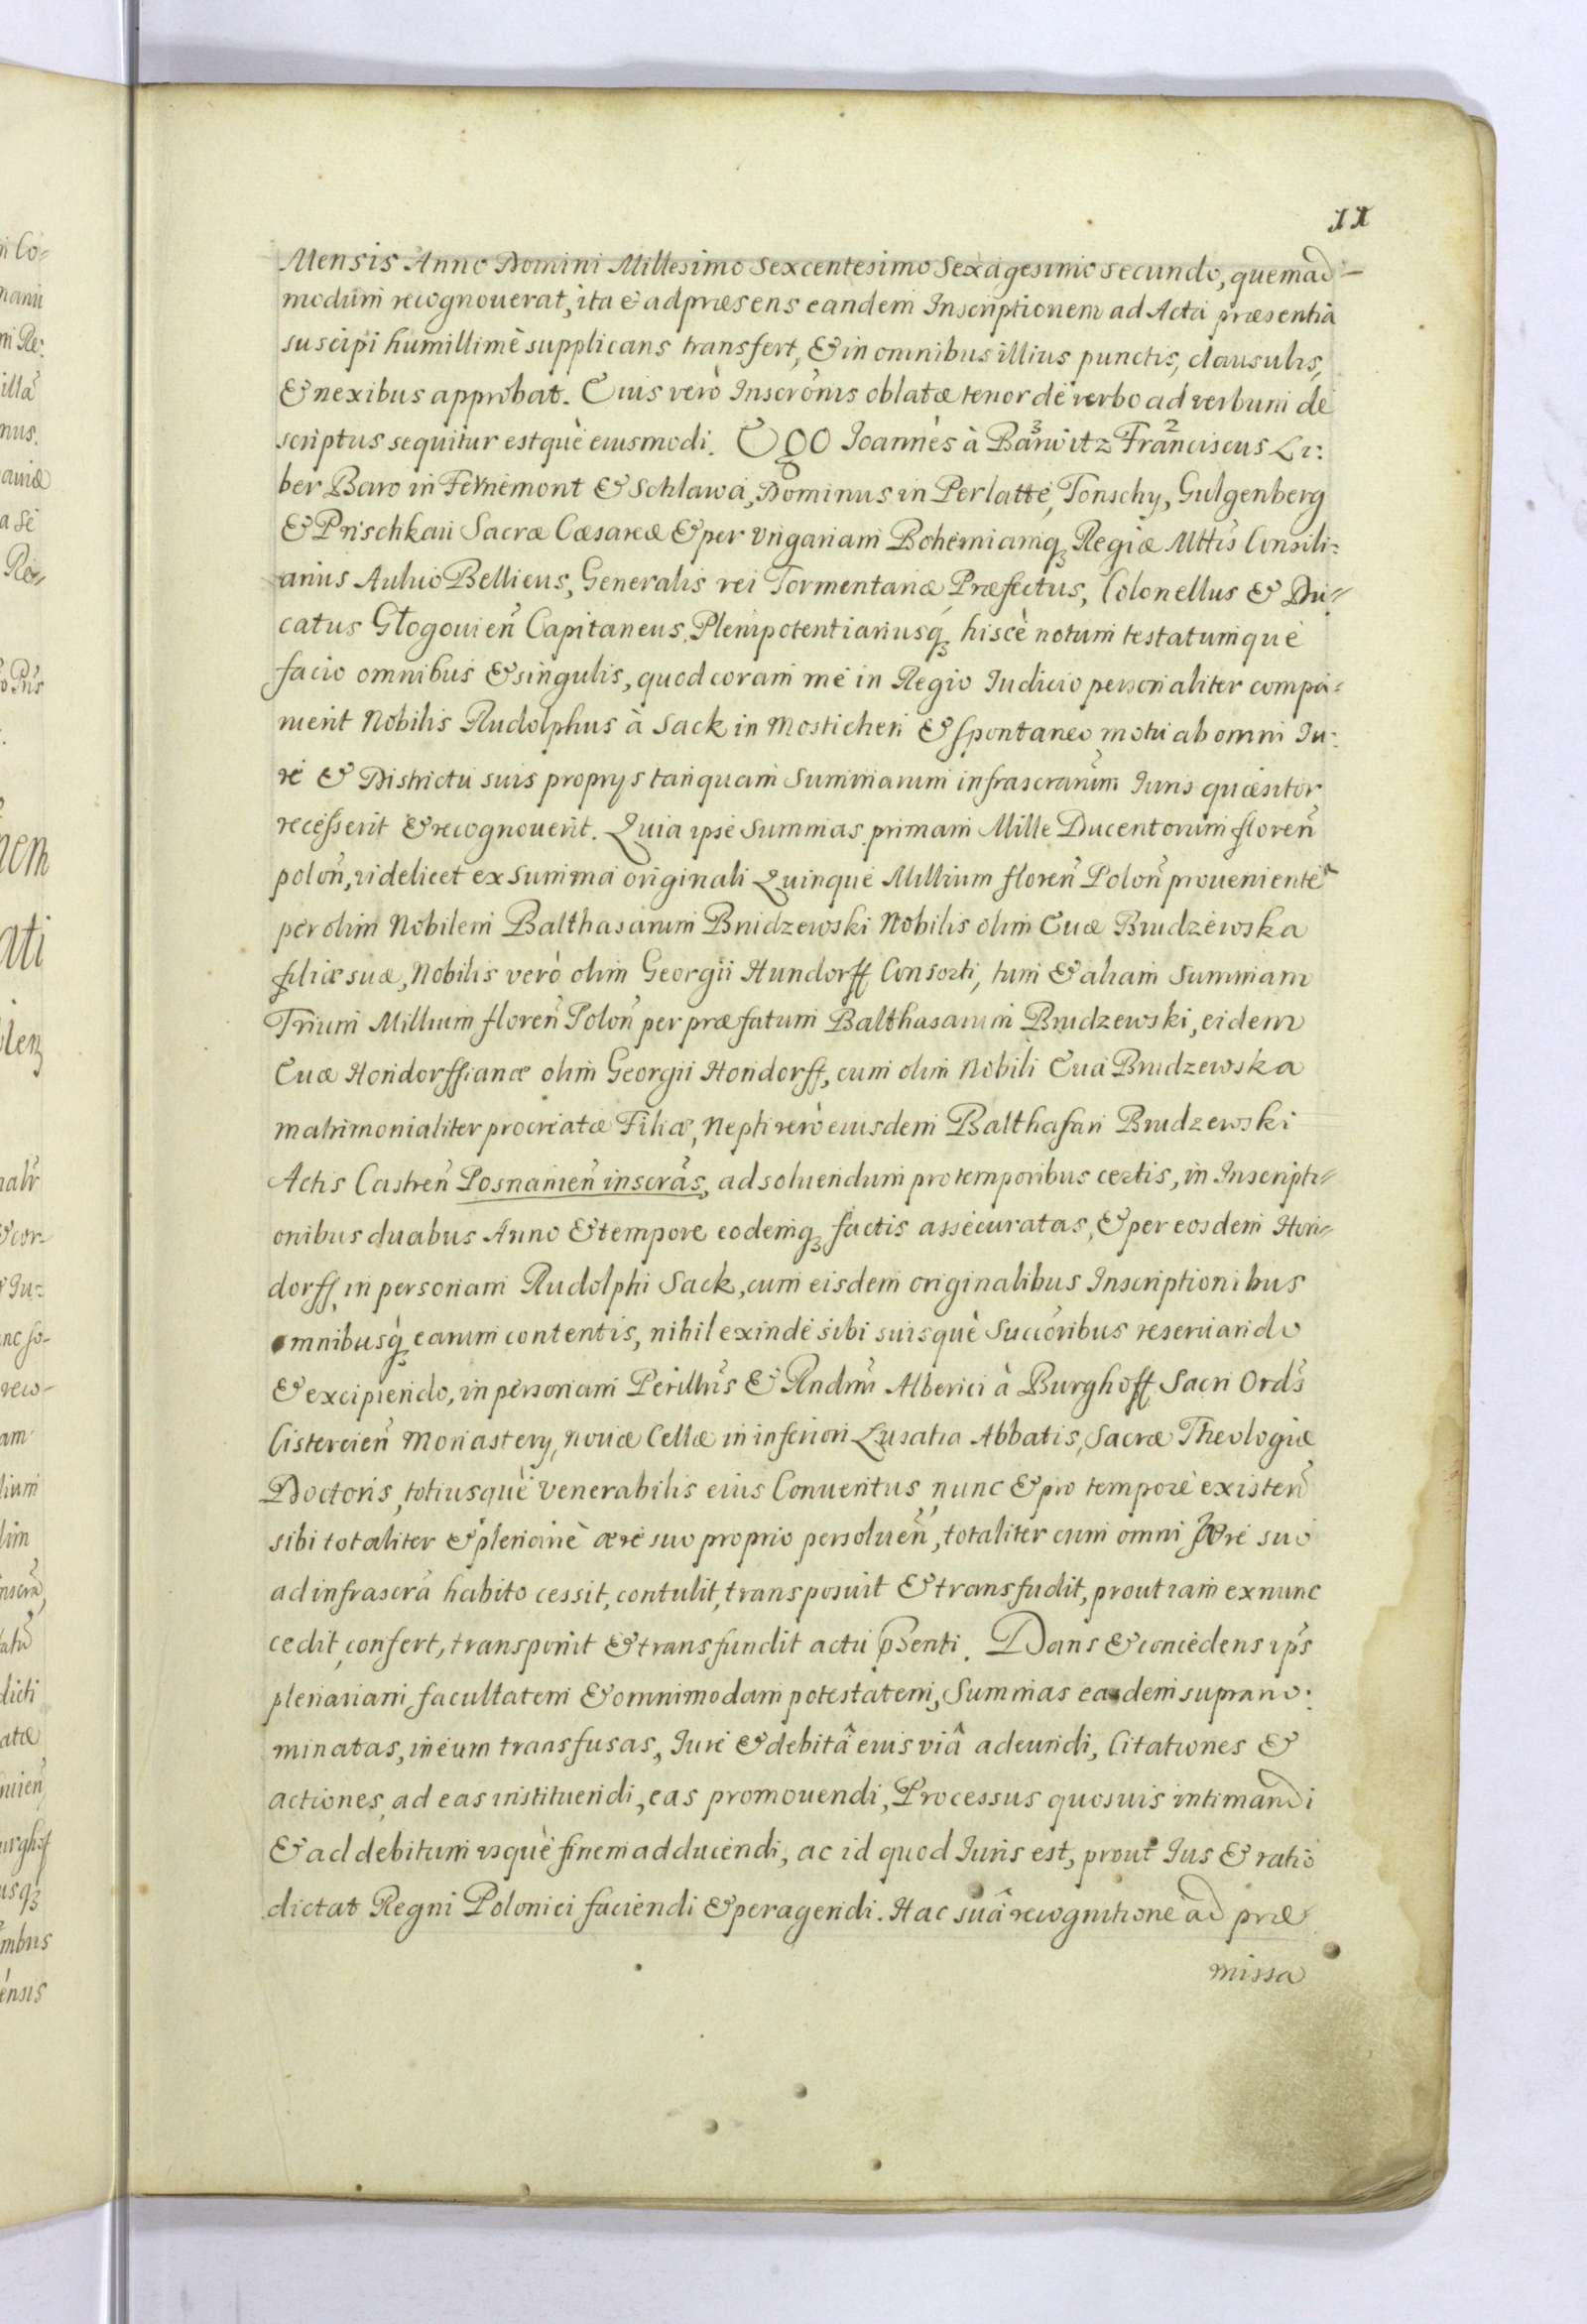 11
Mensis Anno Domini Millesimo Sexcentesimo Sexagesimo secundo, quemad-
modum recognouerat, ita & ad præsens eandem Inscriptionem ad Acta præsentia
suscipi humillimè supplicans transfert, & in omnibus illius punctis, clausulis,
& nexibus approbat. Cuius verò Inscrõnis oblatæ tenor de verbo ad verbum de
scriptus sequitur estquè eiusmodi. EGO Joannes à Barwitz Franciscus Li:
ber Baro in Fernemont & Schlawa, Dominus in Perlatte, Tonschy, Gulgenberg
& Prischkau Sacræ Cæsareæ & per Vngariam Bohemiamq Regiæ Mttis Consili:
arius Aulico Bellicus, Generalis rei Tormentariæ Præfectus, Colonellus & Du=
catus Glogouien̄ Capitaneus, Plenipotentiariusq hiscè notum testatumque
facio omnibus & singulis, quod coram me in Regio Iudicio personaliter compa=
ruerit Nobilis Rudolphus à Sack in Mosticheri & spontaneo motu ab omni Iu:
re & Districtu suis proprys tanquam Summarum infrascrarum Iuris quæsitor
recesserit & recognouerit. Quia ipse Summas primam Mille Ducentorum floren̄
polon̄, videlicet ex Summa originali Quinque Millium floren̄ Polon̄ proueniente
per olim Nobilem Balthasarum Brudzewski Nobilis olim Euæ Brudzewska
filiæ suæ, Nobilis verò olim Georgii Hundorff Consorti, tum & aliam Summam
Trium Millium floren̄ Polon̄ per præfatum Balthasarum Brudzewski, eidem
Euæ Hondorffianæ olim Georgii Hondorff, cum olim Nobili Eua Brudzewska
matrimonialiter procreatæ Filiæ, Nepti verò eiusdem Balthasari Brudzewski
Actis Castren̄ Posnanien̄ inscrãs, ad soluendum pro temporibus certis, in Inscripti=
onibus duabus Anno & tempore eodemq factis assecuratas, & per eosdem Hon=
dorff in personam Rudolphi Sack, cum eisdem originalibus Inscriptionibus
omnibusq earum contentis, nihil exinde sibi suisquè Succõribus reseruando
& excipiendo, in personam Perillris & Rndmi Alberici à Burghoff Sacri Ords
Cistercien̄ Monastery, Nouæ Cellæ in inferiori Lusatia Abbatis, Sacræ Theologiæ
Doctoris, totiusquè Venerabilis eius Conuentus nunc & pro tempore existen̄
sibi totaliter & plenariè ære suo proprio persoluen̄, totaliter cum omni Iure suo
ad infrascra habito cessit, contulit, transposuit & transfudit, prout iam ex nunc
cedit, confert, transponit & transfundit actu pšenti. Dans & concedens ip̄s
plenariam facultatem & omnimodam potestatem, Summas easdem suprano:
minatas, in eum transfusas, Iure & debitâ eius viâ adeundi, Citationes &
actiones, ad eas instituendi, eas promouendi, Processus quosuis intimandi
& ad debitum vsquè finem adducendi, ac id quod Iuris est, prout Ius & ratio
dictat Regni Polonici faciendi & peragendi. Hac suâ recognitione ad præ
missa